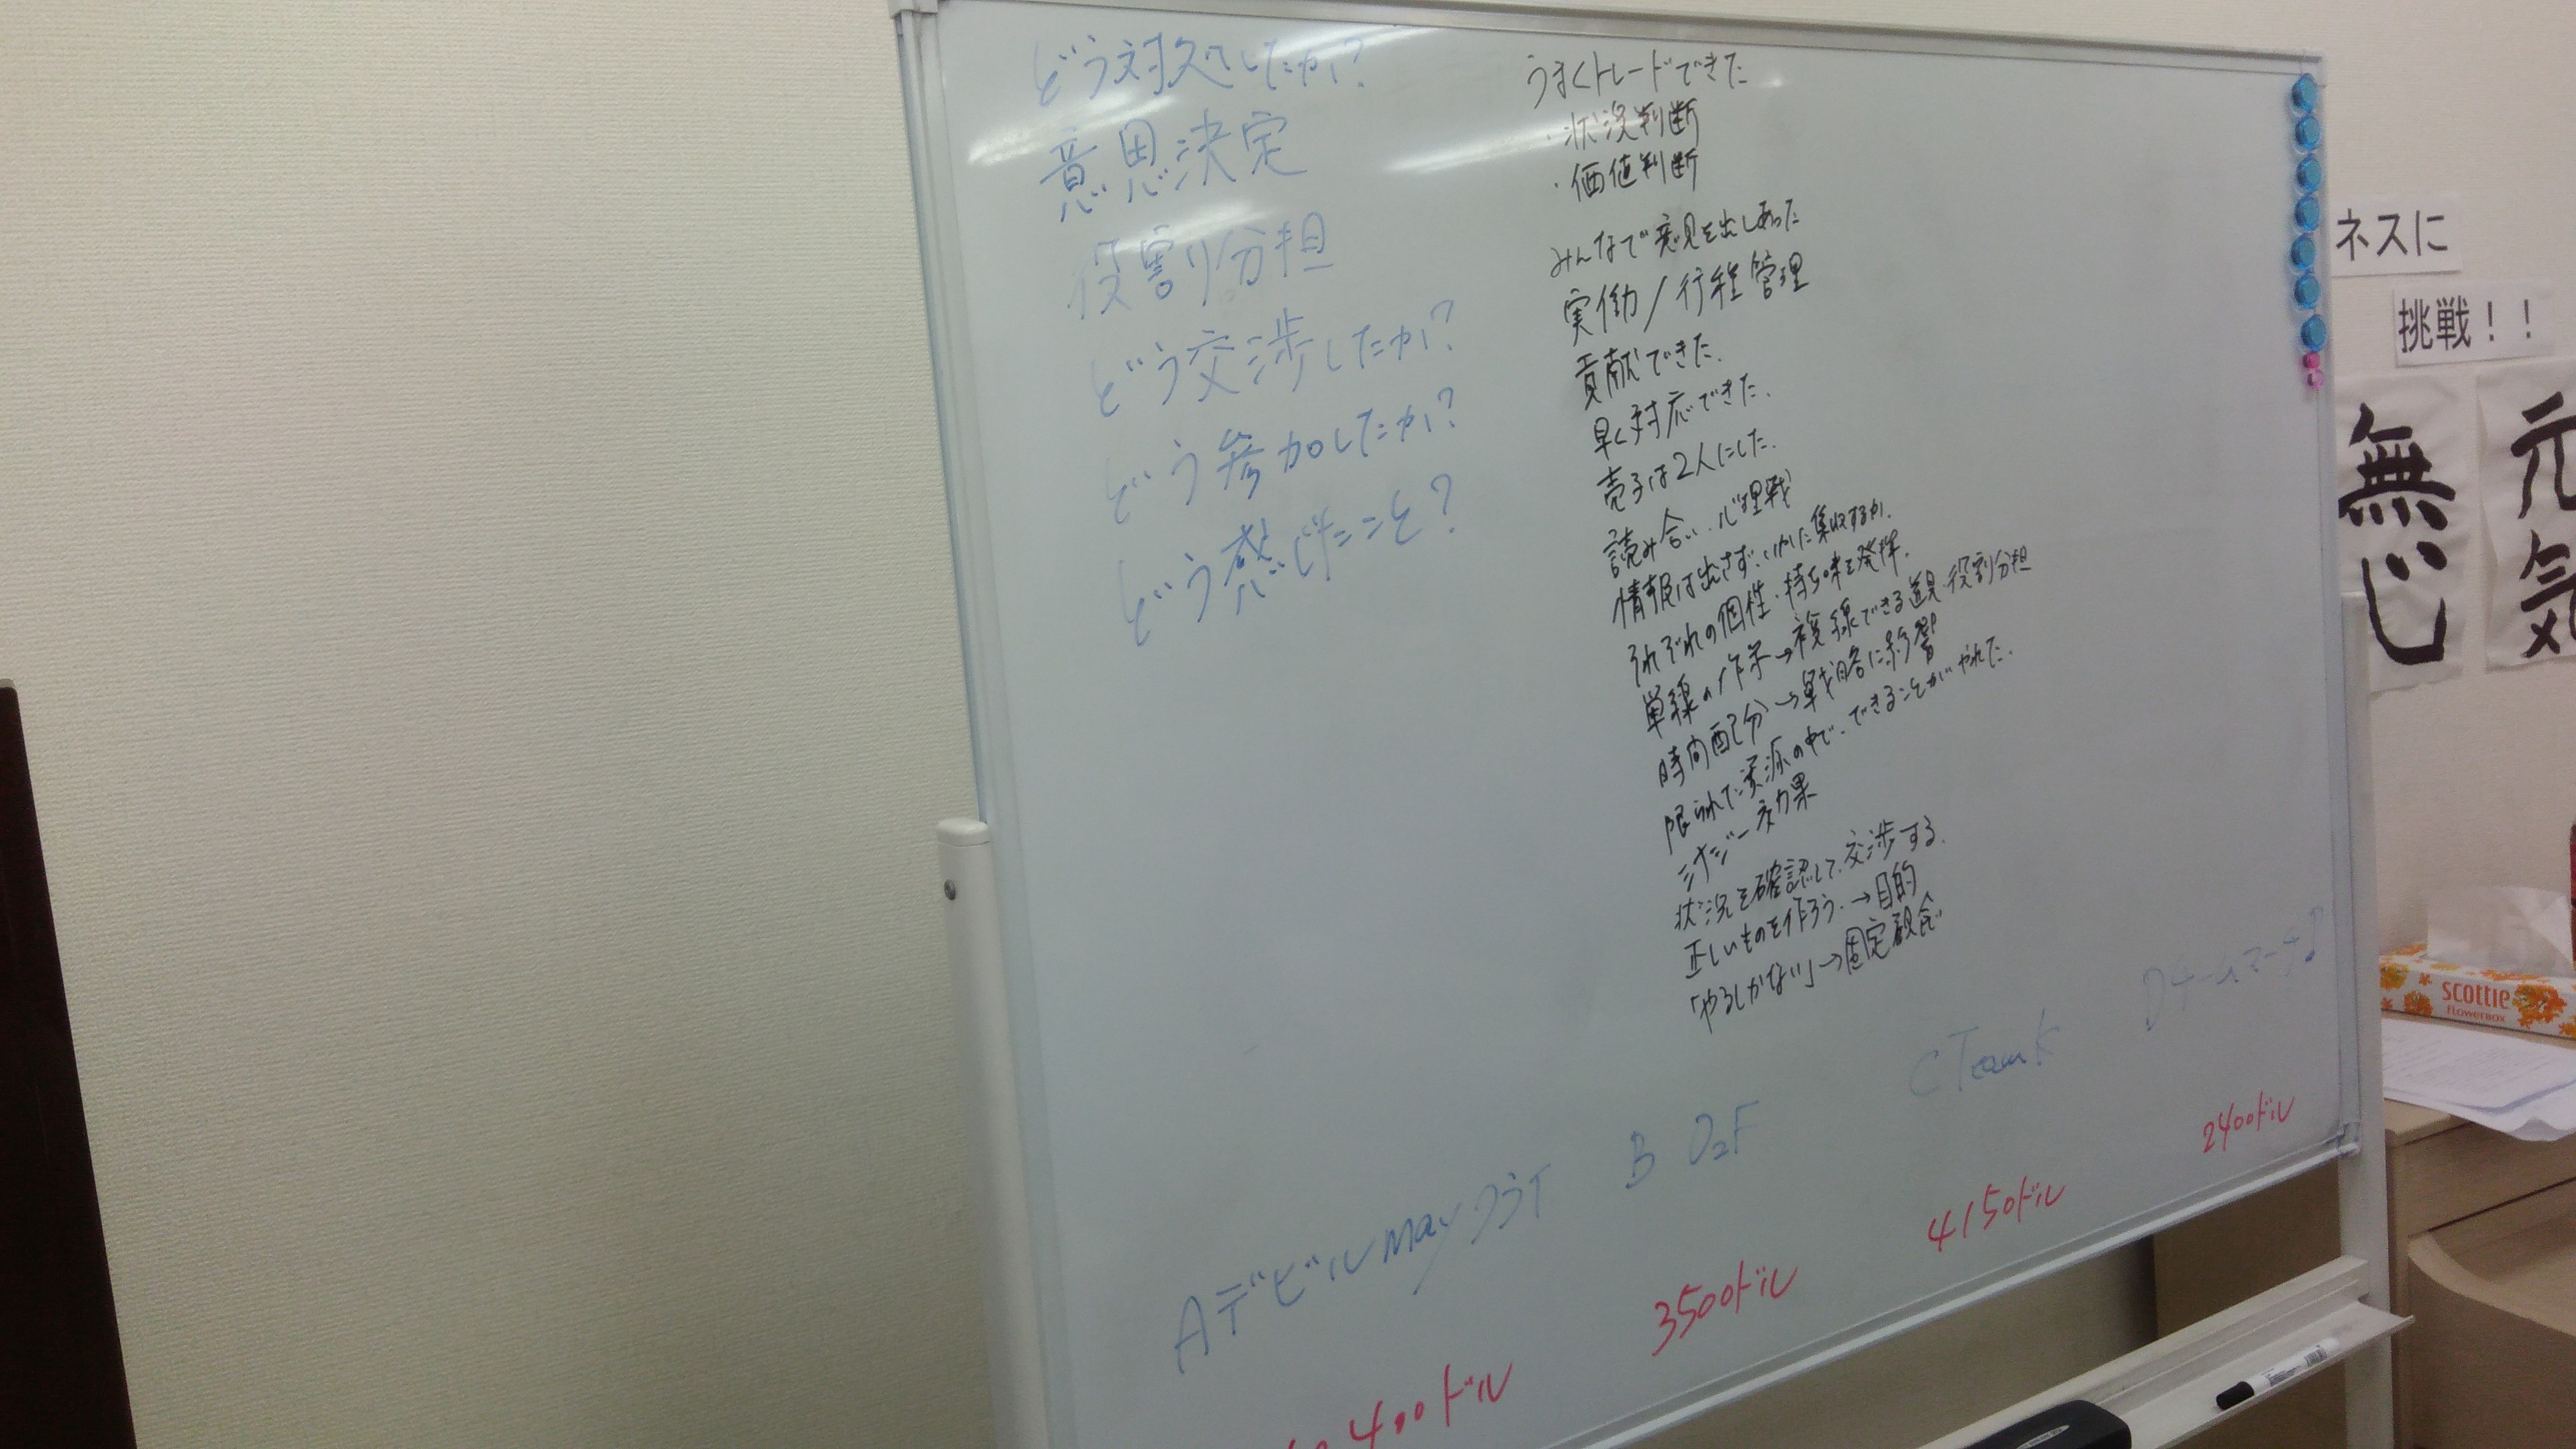 どう対処したか?
意思決定
役割り分担
どう交渉したか?
どう参加したか?
どう感じたこと?
うまくトレードできた
・状況判断
・価値判断
みんなで意見を出しあった
実働/行程管理
貢献できた.
早く対応できた.
売子は2人にした.
読み合い.心理戦
情報は出さず.いかに集収するか.
それぞれの個性・持ち味を発揮.
単線の作業→複線できる道具・役割分担
時間配分→戦略に影響
限られた資源の中で.できることがやれた.
シナジー効果
状況を確認して.交渉する.
正しいものを作ろう.→目的
「やるしかない」→固定観念
Aデビルmayクライ
B O2F
C TeamK
Dチームマーチ♪
400ドル
3500ドル
4150ドル
2400ドル
ネスに
挑戦!!
無じ
元気
scottie
FLOWERBOX